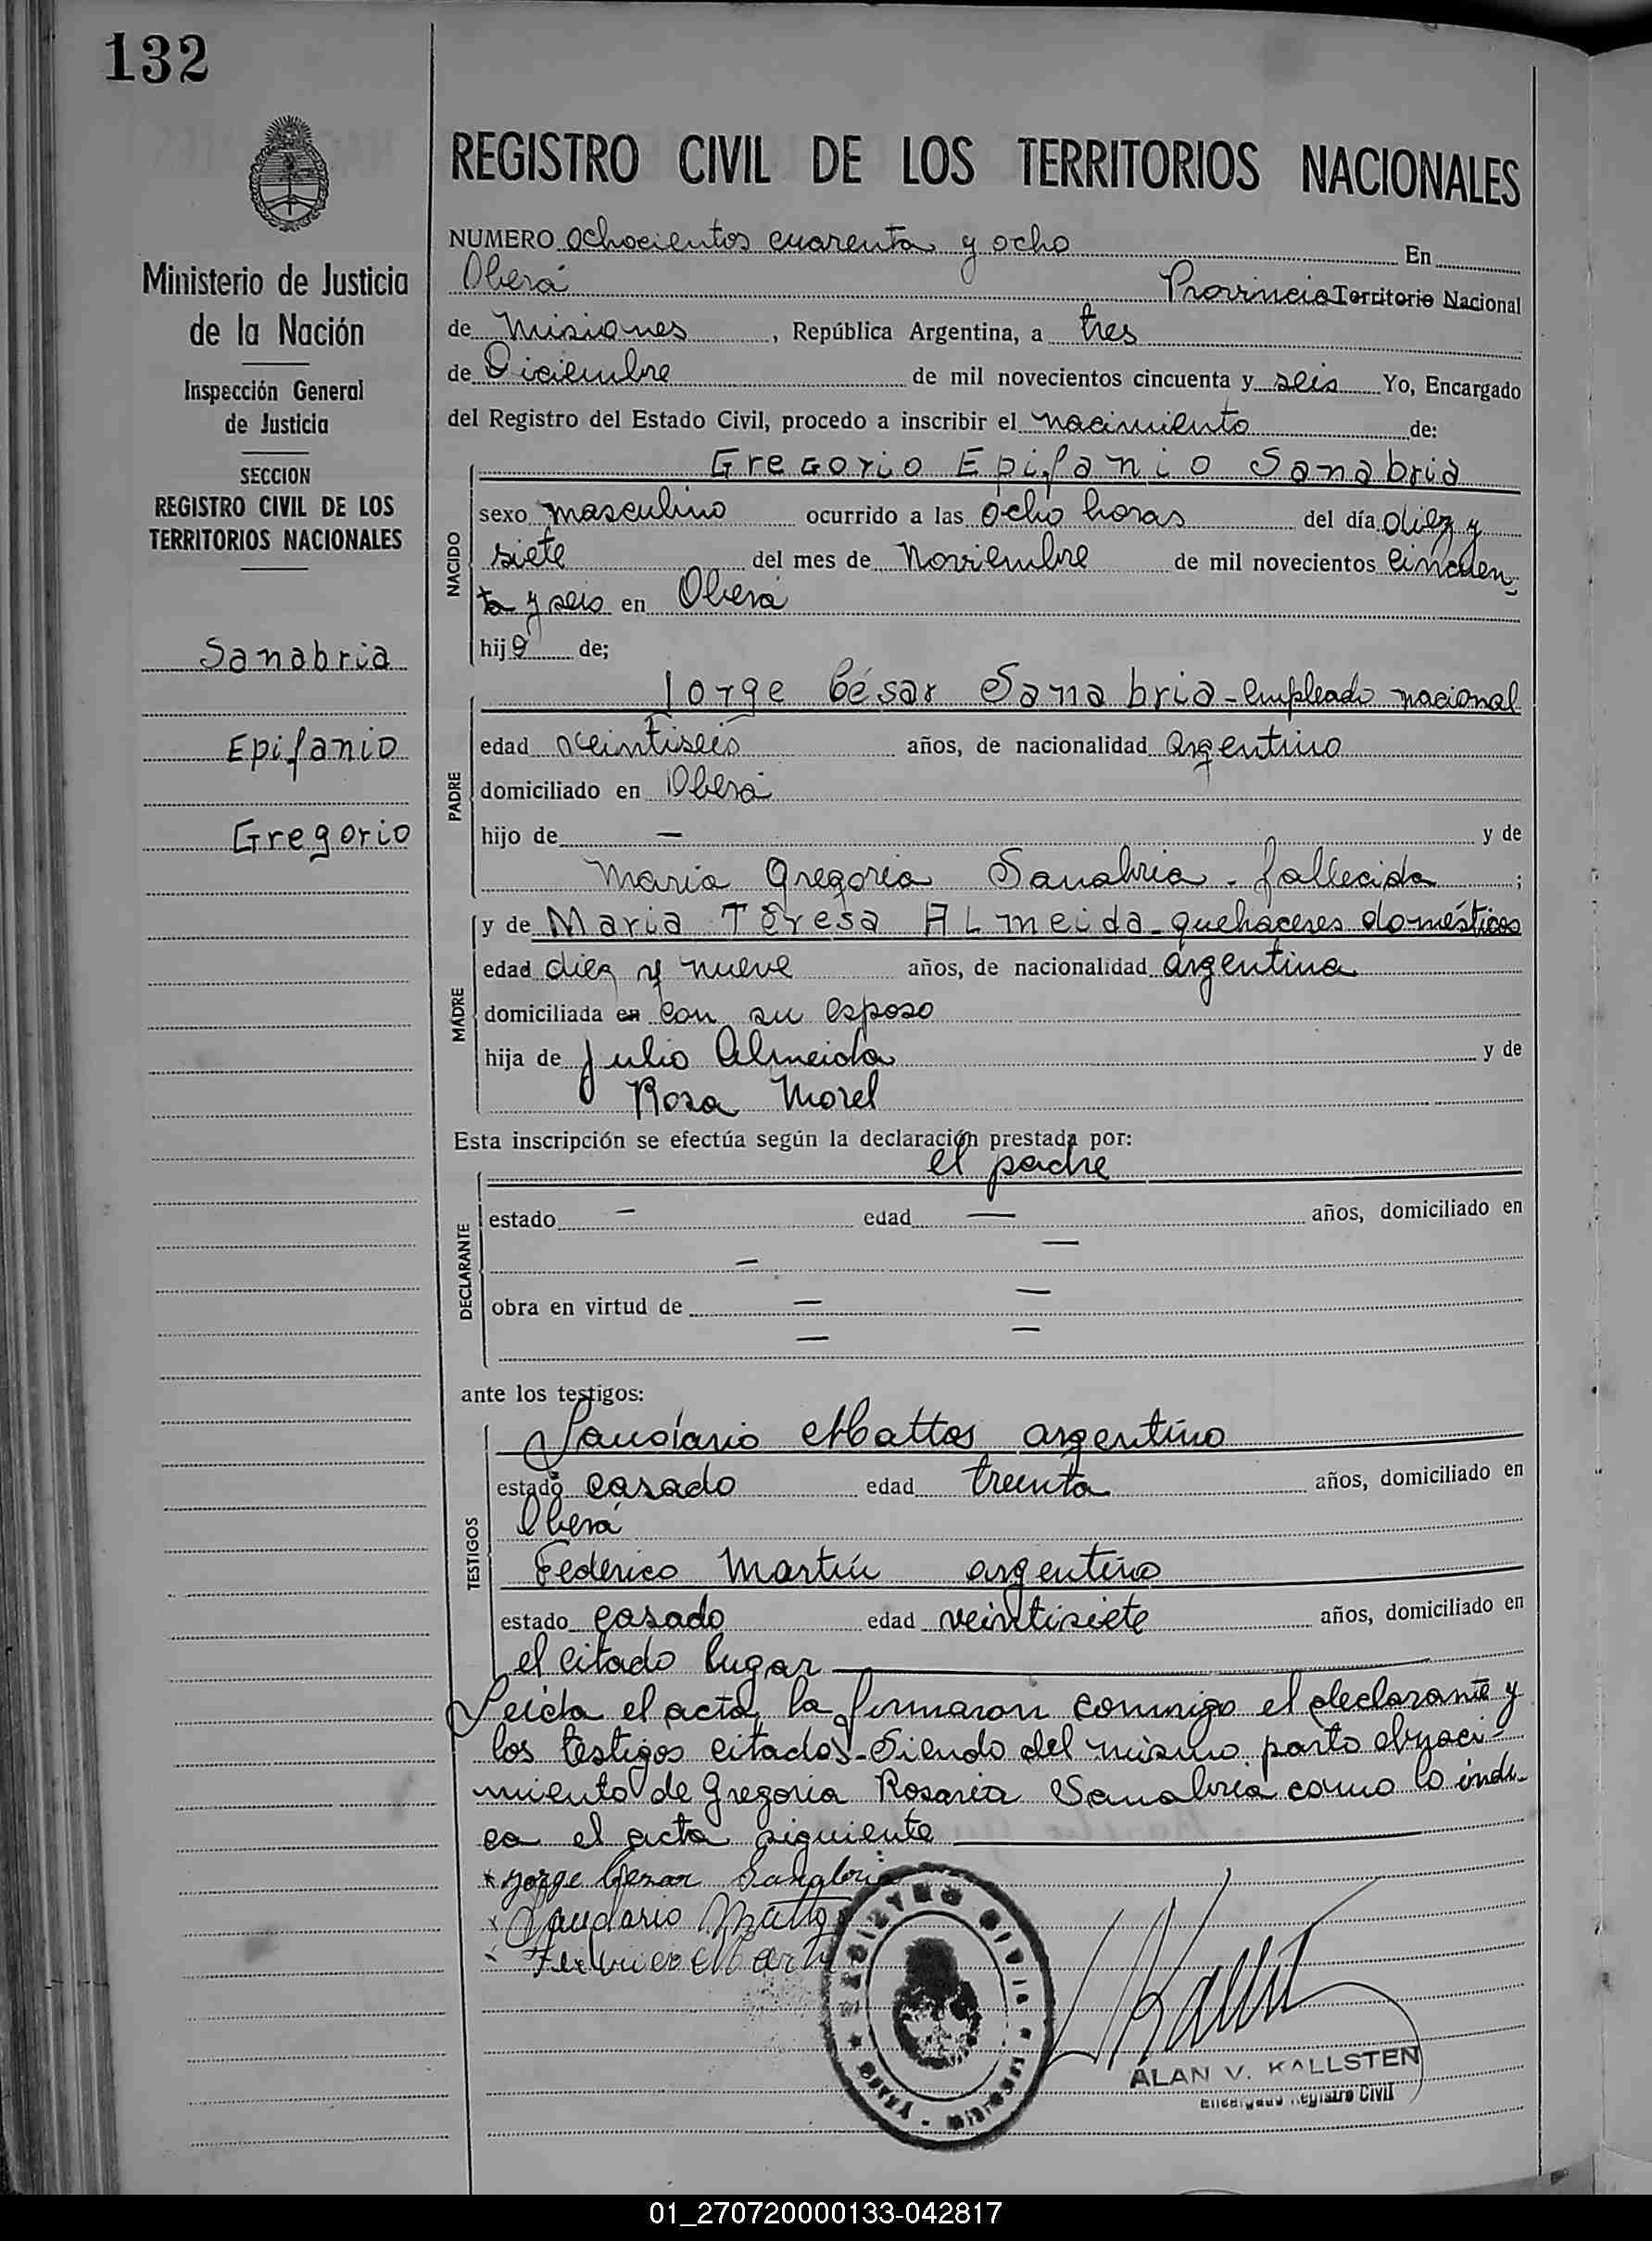 132
REGISTRO CIVIL DE LOS TERRITORIOS NACIONALES
Ministerio de Justicia
de la Nación
Inspección General
de Justicia
SECCION
REGISTRO CIVIL DE LOS
TERRITORIOS NACIONALES
Sanabria
Epifanio
Gregorio
NUMERO ochocientos cuarenta y ocho En
Oberá Provincia Territorio Nacional
de Misiones, República Argentina, a tres
de Diciembre de mil novecientos cincuenta y seis Yo, Encargado
del Registro del Estado Civil, procedo a inscribir el nacimiento de:
Gregorio Epifanio Sanabria
NACIDO
sexo masculino ocurrido a las ocho horas del día diez y
siete del mes de Noviembre de mil novecientos cincuen
ta y seis en Oberá
hijo de;
Jorge César Sanabria - empleado nacional
PADRE
edad veintiseis años, de nacionalidad argentino
domiciliado en Oberá
hijo de — y de
Maria Gregoria Sanabria - fallecida ;
y de Maria Teresa Almeida - quehaceres domésticos
MADRE
edad diez y nueve años, de nacionalidad argentina
domiciliada en con su esposo
hija de Julio Almeida y de
Rosa Morel
Esta inscripción se efectúa según la declaración prestada por:
el padre
DECLARANTE
estado — edad — años, domiciliado en
— —
obra en virtud de — —
— —
ante los testigos:
Laudario Mattos argentino
TESTIGOS
estado casado edad treinta años, domiciliado en
Oberá
Federico Martin argentino
estado casado edad veintisiete años, domiciliado en
el citado lugar
Leida el acta, la firmaron conmigo el declarante y
los testigos citados - Siendo del mismo parto el naci-
miento de Gregoria Rosaria Sanabria como lo indi-
ca el acta siguiente
Jorge Cesar Sanabria
Laudario Mattos
Federico Martin
REGISTRO CIVIL
OBERA - MISIONES
ALAN V. KALLSTEN
Encargado Registro Civil
01_270720000133-042817